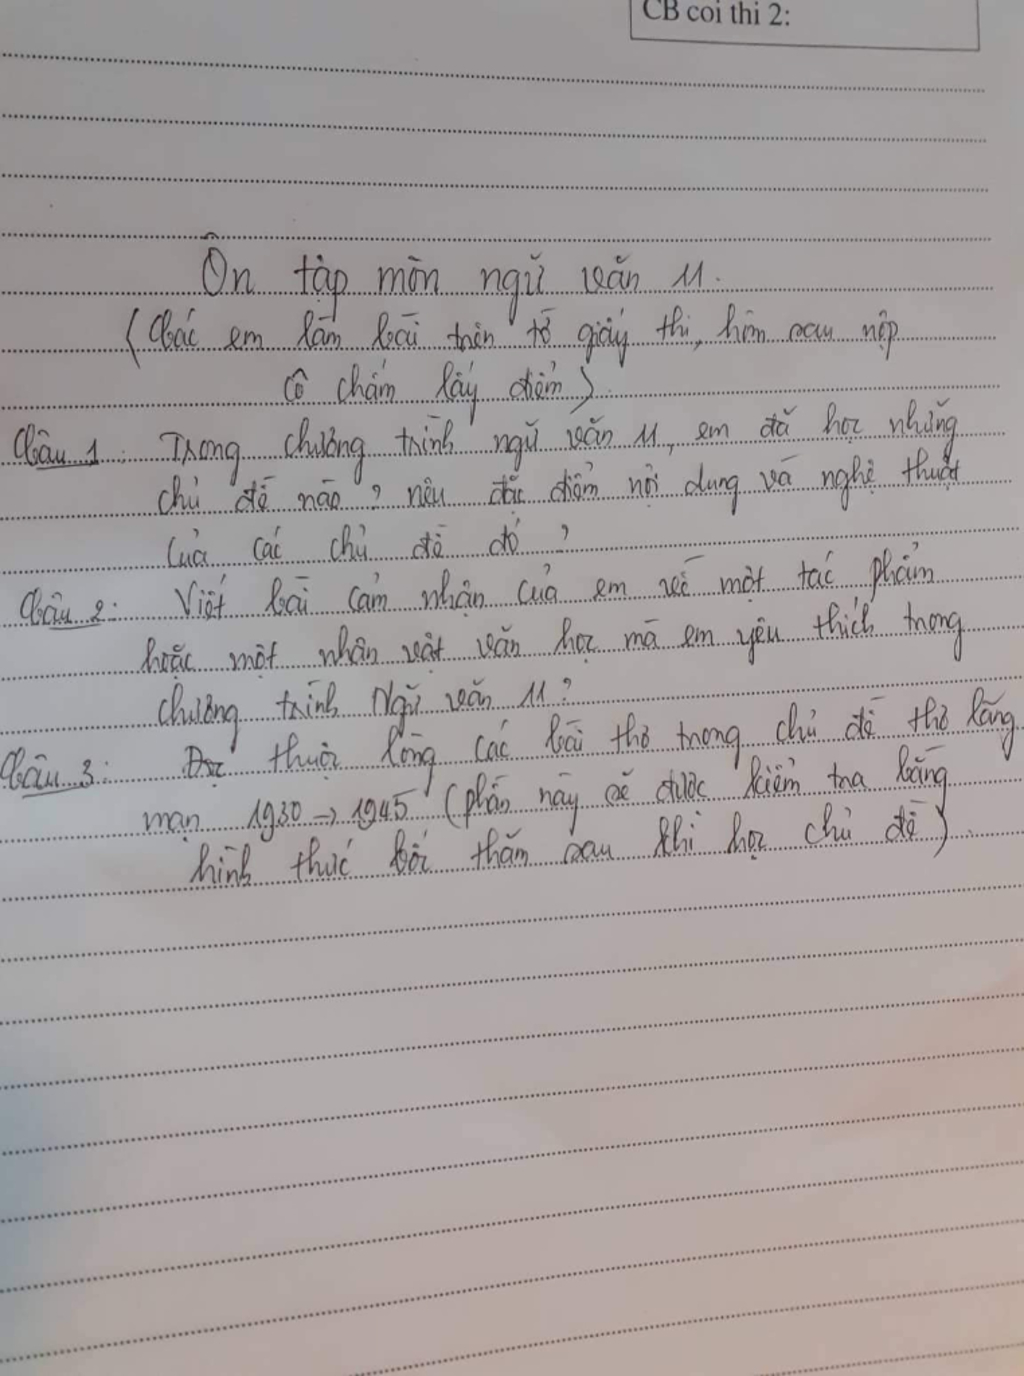 CB coi thi 2:
Ôn tập môn ngữ văn 11.
(Các em làm bài trên tờ giấy thi, hôm sau nộp
cô chấm lấy điểm)
Câu 1: Trong chương trình ngữ văn 11, em đã học những
chủ đề nào? nêu đặc điểm nội dung và nghệ thuật
của các chủ đề đó?
Câu 2: Viết bài cảm nhận của em về một tác phẩm
hoặc một nhân vật văn học mà em yêu thích trong
chương trình Ngữ văn 11?
Câu 3: Đọc thuộc lòng các bài thơ trong chủ đề thơ lãng
mạn 1930 → 1945 (phần này sẽ được kiểm tra bằng
hình thức bốc thăm sau khi học chủ đề).